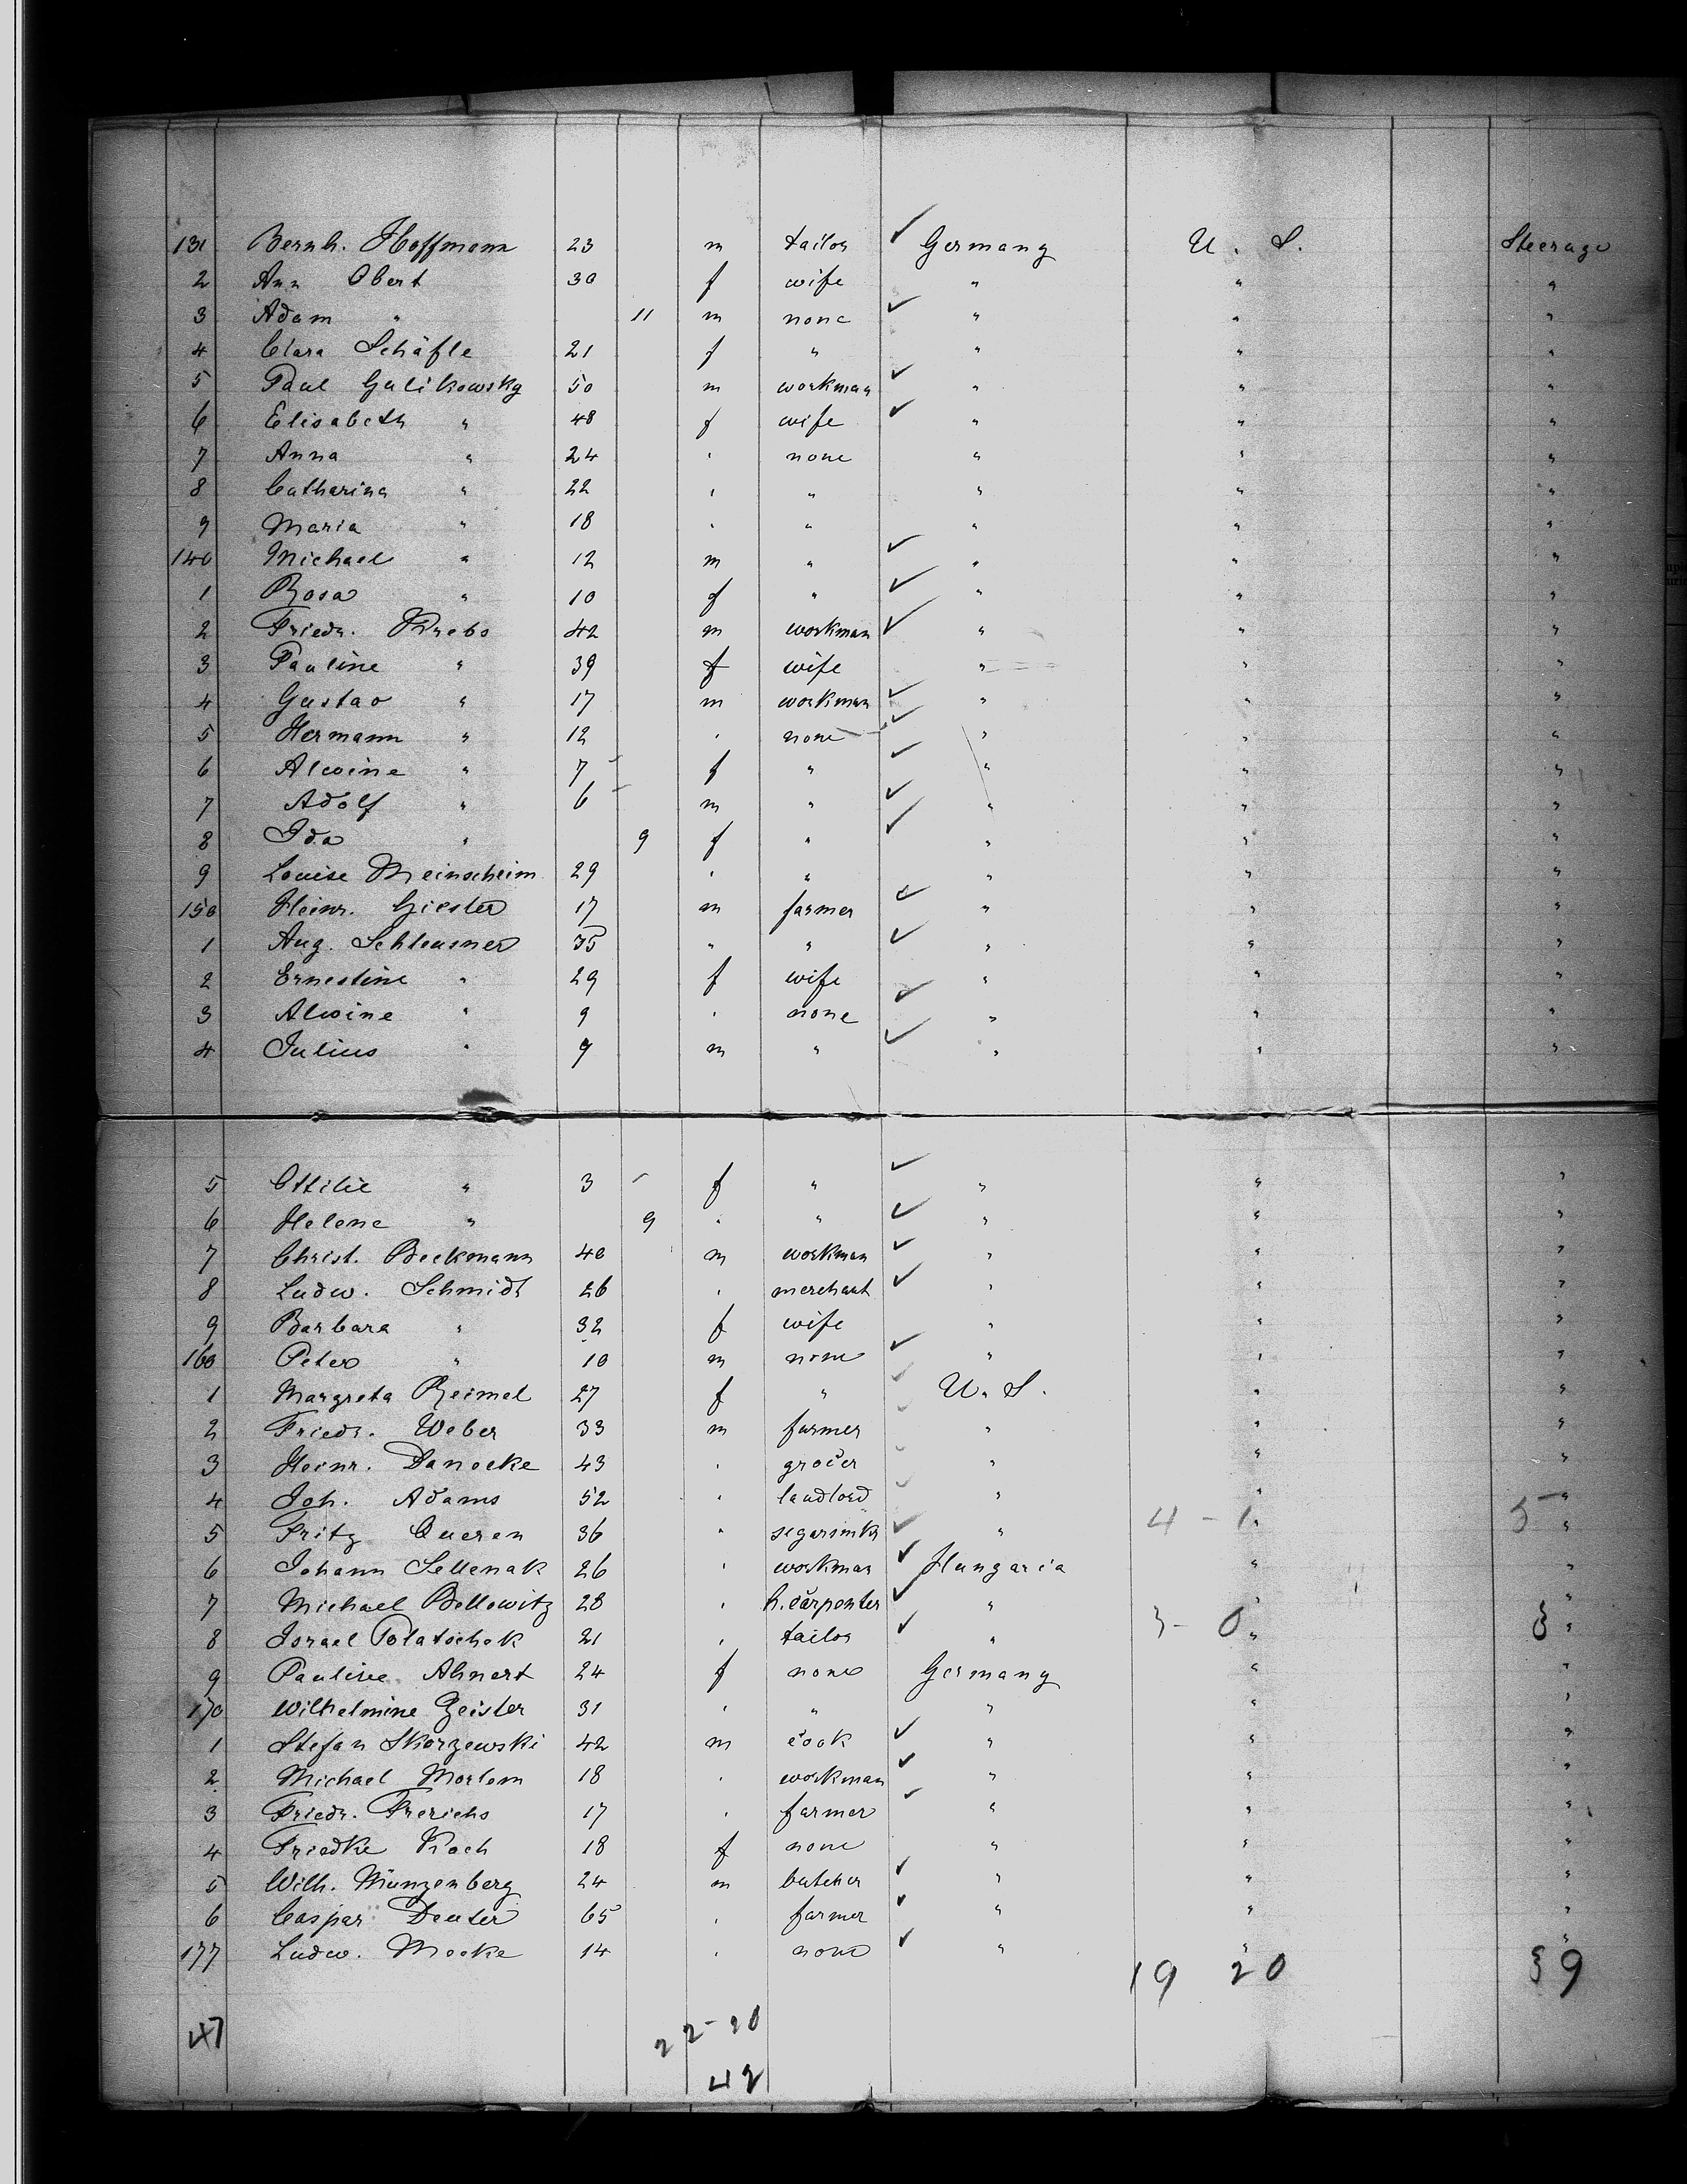 131 Bernh. Hoffmann 23 m tailor ✓ Germany U. S. Steerage
2 Ann Obert 30 f wife " " "
3 Adam " 11 m none ✓ " " "
4 Clara Schäfle 21 f " " " "
5 Paul Galikowsky 50 m workman ✓ " " "
6 Elisabeth " 48 f wife ✓ " " "
7 Anna " 24 " none " " "
8 Catharina " 22 " " " " "
9 Maria " 18 " " " " "
140 Michael " 12 m " ✓ " " "
1 Rosa " 10 f " ✓ " " "
2 Friedr. Krebs 42 m workman ✓ " " "
3 Pauline " 39 f wife " " "
4 Gustav " 17 m workman ✓ " " "
5 Hermann " 12 " none ✓ " " "
6 Alwine " 7 f " ✓ " " "
7 Adolf " 6 m " ✓ " " "
8 Ida " 9 f " ✓ " " "
9 Louise Meinscheim 29 " " " " "
150 Heinr. Giester 17 m farmer ✓ " " "
1 Aug. Schleusner 35 " " ✓ " " "
2 Ernestine " 29 f wife " " "
3 Alwine " 9 " none ✓ " " "
4 Julius " 9 m " ✓ " " "
5 Ottilie " 3 f " ✓ " " "
6 Helene " 9 " " ✓ " " "
7 Christ. Beckmann 40 m workman ✓ " " "
8 Ludw. Schmidt 26 " merchant ✓ " " "
9 Barbara " 32 f wife " " "
160 Peter " 10 m none ✓ " " "
1 Margreta Reimel 27 f " ✓ U. S. " "
2 Friedr. Weber 33 m farmer ✓ " " "
3 Heinr. Danecke 43 " grocer ✓ " " "
4 Joh. Adams 52 " landlord ✓ " " "
5 Fritz Queren 36 " segarmkr ✓ " 4 - 1 " 5 "
6 Johann Sellenak 26 " workman ✓ Hungaria " "
7 Michael Bellowitz 28 " h. carpenter ✓ " " "
8 Israel Polatschek 21 " tailor ✓ " 3 - 0 " 3 "
9 Pauline Ahnert 24 f none Germany " "
170 Wilhelmine Geister 31 " " " " "
1 Stefan Skorzewski 42 m cook ✓ " " "
2 Michael Morlem 18 " workman ✓ " " "
3 Friedr. Frerichs 17 " farmer ✓ " " "
4 Friedke Koch 18 f none " " "
5 Wilh. Münzenberg 24 m butcher ✓ " " "
6 Caspar Deuter 65 " farmer ✓ " " "
177 Ludw. Mocke 14 " none ✓ " " "
19 20 39
47
22 - 20
42